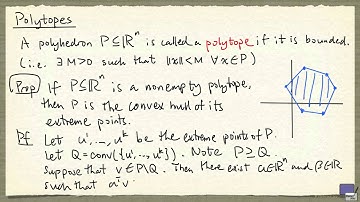 Polytopes
A polyhedron P⊆ℝⁿ is called a polytope if it is bounded.
(i.e. ∃ M>0 such that ‖x‖<M ∀x∈P)
Prop If P⊆ℝⁿ is a nonempty polytope,
then P is the convex hull of its
extreme points.
Pf Let u¹,…,uᵏ be the extreme points of P.
Let Q=conv({u¹,…,uᵏ}). Note P⊇Q.
Suppose that v∈P\Q. Then there exist a∈ℝⁿ and β∈ℝ
such that aᵀv